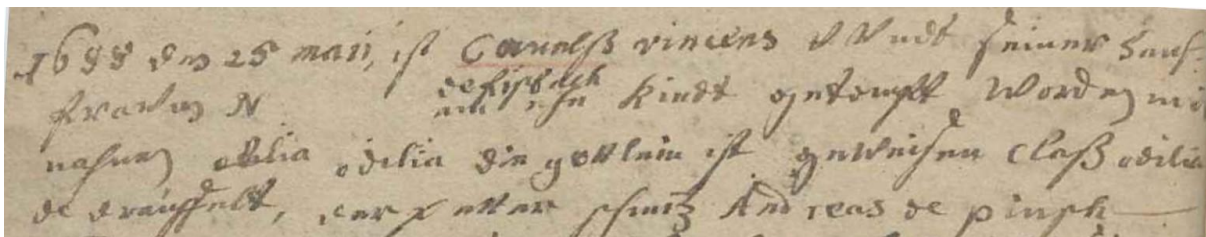 1688 den 25 maii, ist Carelß vincens Vndt seiner Hauß
frawen N de fischbach ein ehe kindt getaufft worden mi
nahmen odilia die gottlein ist geweisen Claß odilia
de dreinffelt, der petter schmitz Andreas de pinsch